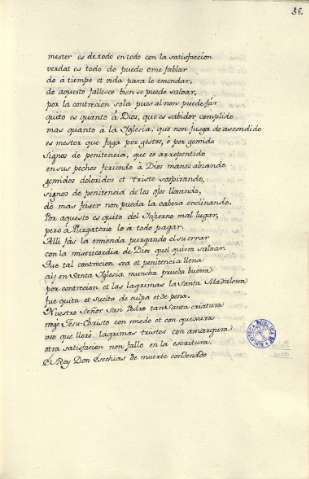 38.
mester es de todo en todo con la satisfacion
verdat es todo de puede ome fablar
do á tiempo et vida para lo emendar,
de aquesto fallesce bien se puede salvar,
por la contricion sola pues al non puede far
quito es quanto á Dios, que es sabidor complido
mas quanto á la Iglesia, que non juzga de ascondido
es mester que faga por gestos, ó por gemido
Signos de penitencia, que es arrepentido
en sus pechos firiendo á Dios manos alzando
gemidos doloridos et triste sospirando,
signos de penitencia de los ojos llorando,
do mas fascer non pueda la cabeza enclinando.
Por aquesto es quito del Infierno mal lugar,
pero á Purgatorio lo á todo pagar.
Alli fás la emienda purgando el su errar
con la misericordia de Dios quel quira salvar.
Que tal contricion sea et penitencia llena
ay en Santa Iglesia muncha prueba buena
por contricion et las lagrimas la Santa Madalena
fue quita et suelta de culpa et de pena.
Nuestro Señor San Pedro tan Santa criatura
negó Jesu-Christo con miedo et con quexura
se que lloró lagrimas tristes con amargura
otra satisfacion non fallo en la escritura.
El Rey Don Esechias de muerte condenado